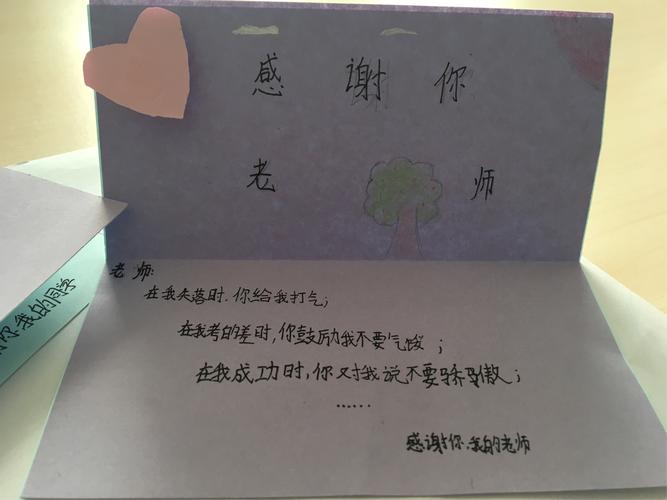 感谢你
老师
老师:
在我失落时,你给我打气;
在我考的差时,你鼓励我不要气馁;
在我成功时,你对我说不要骄傲;
……
感谢你.我的老师
你我的同学